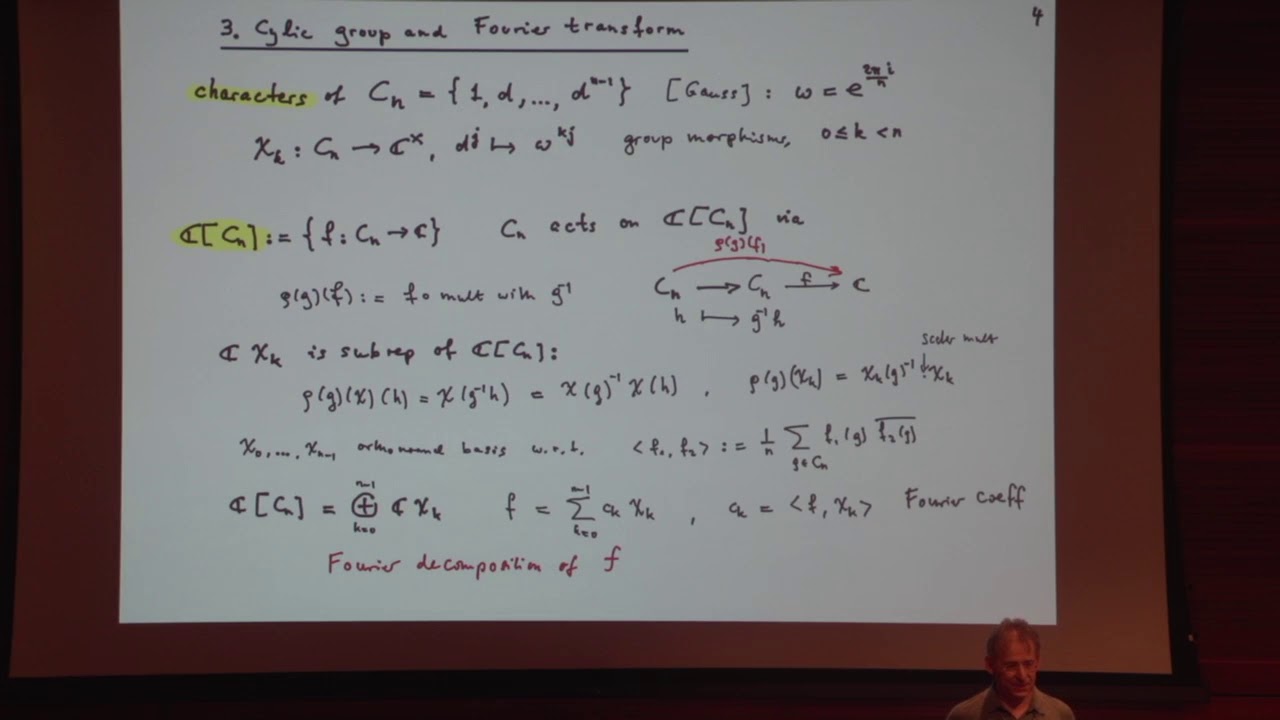 4
3. Cylic group and Fourier transform
characters of Cₙ = {1, d, ..., dⁿ⁻¹} [Gauss] : ω = e^{2πi/n}
χₖ : Cₙ → ℂˣ, dʲ ↦ ω^{kj} group morphisms, 0 ≤ k < n
ℂ[Cₙ] := {f : Cₙ → ℂ} Cₙ acts on ℂ[Cₙ] via
ρ(g)(f)
ρ(g)(f) := f ∘ mult with g⁻¹ Cₙ → Cₙ →^f ℂ
h ↦ g⁻¹h
scalar mult
ℂ χₖ is subrep of ℂ[Cₙ] :
ρ(g)(χ)(h) = χ(g⁻¹h) = χ(g)⁻¹ χ(h) , ρ(g)(χₖ) = χₖ(g)⁻¹ ↓ χₖ
χ₀, ..., χₙ₋₁ orthonormal basis w.r.t. <f₁, f₂> := 1/n ∑_{g∈Cₙ} f₁(g) \overline{f₂(g)}
ℂ[Cₙ] = ⊕_{k=0}^{n-1} ℂ χₖ f = ∑_{k=0}^{n-1} aₖ χₖ , aₖ = <f, χₖ> Fourier coeff
Fourier decomposition of f